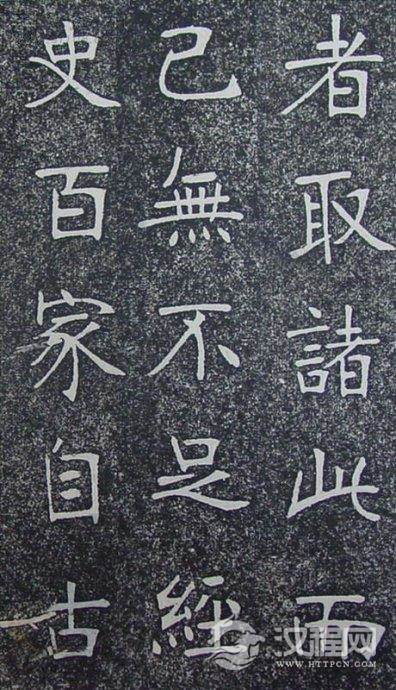 者取諸此而
已無不足經
史百家自古
汉程网
WWW.HTTPCN.COM